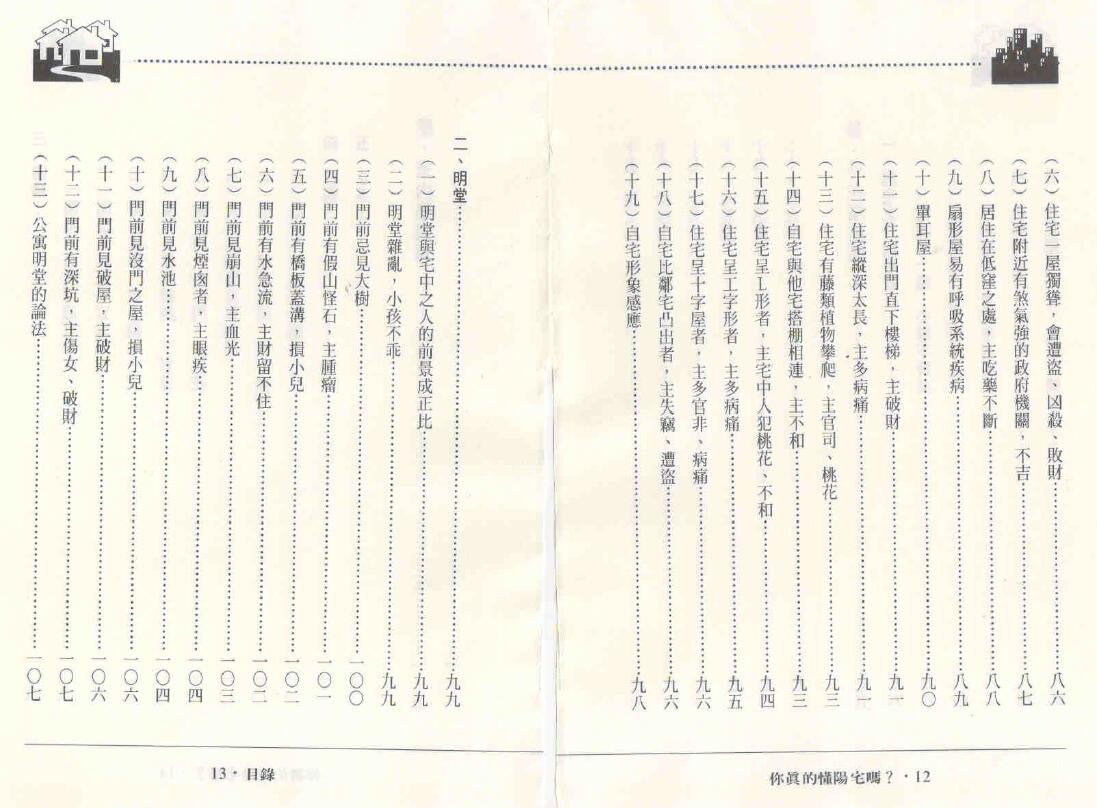 （六）住宅一屋獨聳，會遭盜、凶殺、敗財……八六
（七）住宅附近有煞氣強的政府機關，不吉……八七
（八）居住在低窪之處，主吃藥不斷……八八
（九）扇形屋易有呼吸系統疾病……八九
（十）單耳屋……九〇
（十一）住宅出門直下樓梯，主破財……九一
（十二）住宅縱深太長，主多病痛……九一
（十三）住宅有藤類植物攀爬，主官司、桃花……九三
（十四）自宅與他宅搭棚相連，主不和……九三
（十五）住宅呈L形者，主宅中人犯桃花、不和……九四
（十六）住宅呈工字形者，主多病痛……九五
（十七）住宅呈十字屋者，主多官非、病痛……九六
（十八）自宅比鄰宅凸出者，主失竊、遭盜……九六
（十九）自宅形象感應……九八
你眞的懂陽宅嗎？·12
二、明堂……九九
（一）明堂與宅中之人的前景成正比……九九
（二）明堂雜亂，小孩不乖……九九
（三）門前忌見大樹……一〇〇
（四）門前有假山怪石，主腫瘤……一〇一
（五）門前有橋板蓋溝，損小兒……一〇二
（六）門前有水急流，主財留不住……一〇二
（七）門前見崩山，主血光……一〇三
（八）門前見煙囪者，主眼疾……一〇四
（九）門前見水池……一〇四
（十）門前見沒門之屋，損小兒……一〇六
（十一）門前見破屋，主破財……一〇六
（十二）門前有深坑，主傷女、破財……一〇七
（十三）公寓明堂的論法……一〇七
13·目錄